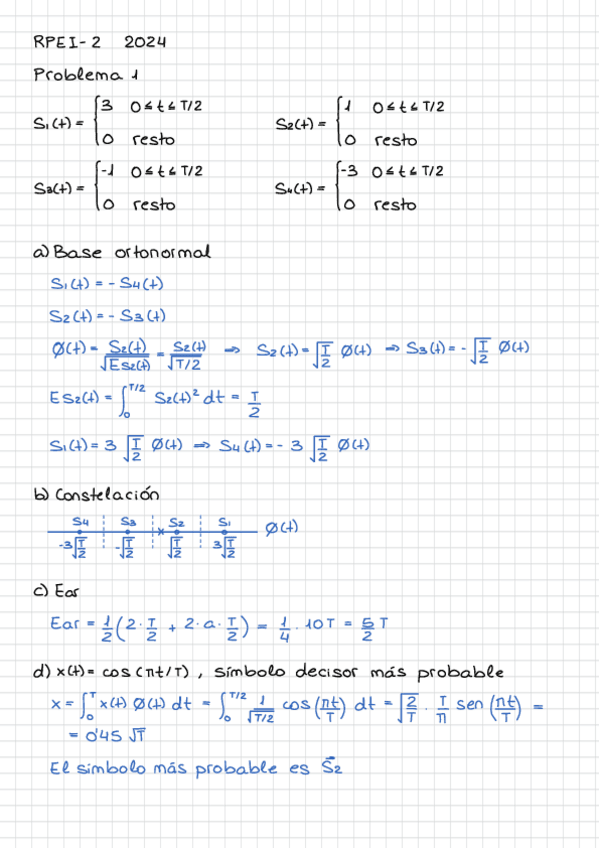 RPEI-2 2024
Problema 1
S₁(t) = { 3 0 ≤ t ≤ T/2 S₂(t) = { 1 0 ≤ t ≤ T/2
0 resto 0 resto
S₃(t) = { -1 0 ≤ t ≤ T/2 S₄(t) = { -3 0 ≤ t ≤ T/2
0 resto 0 resto
a) Base ortonormal
S₁(t) = - S₄(t)
S₂(t) = - S₃(t)
Ø(t) = S₂(t)/√Es₂(t) = S₂(t)/√T/2 ⇒ S₂(t) = √(T/2) Ø(t) ⇒ S₃(t) = - √(T/2) Ø(t)
Es₂(t) = ∫₀^T/2 S₂(t)² dt = T/2
S₁(t) = 3 √(T/2) Ø(t) ⇒ S₄(t) = - 3 √(T/2) Ø(t)
b) Constelación
S₄ S₃ x S₂ S₁ Ø(t)
-3√(T/2) -√(T/2) √(T/2) 3√(T/2)
c) Ear
Ear = 1/2 (2 · T/2 + 2 · a · T/2) = 1/4 · 10T = 5/2 T
d) x(t) = cos (πt/T) , símbolo decisor más probable
x = ∫₀^T x(t) Ø(t) dt = ∫₀^T/2 1/√T/2 cos (πt/T) dt = √(2/T) · T/π sen (πt/T) =
= 0'45 √T
El simbolo más probable es S₂